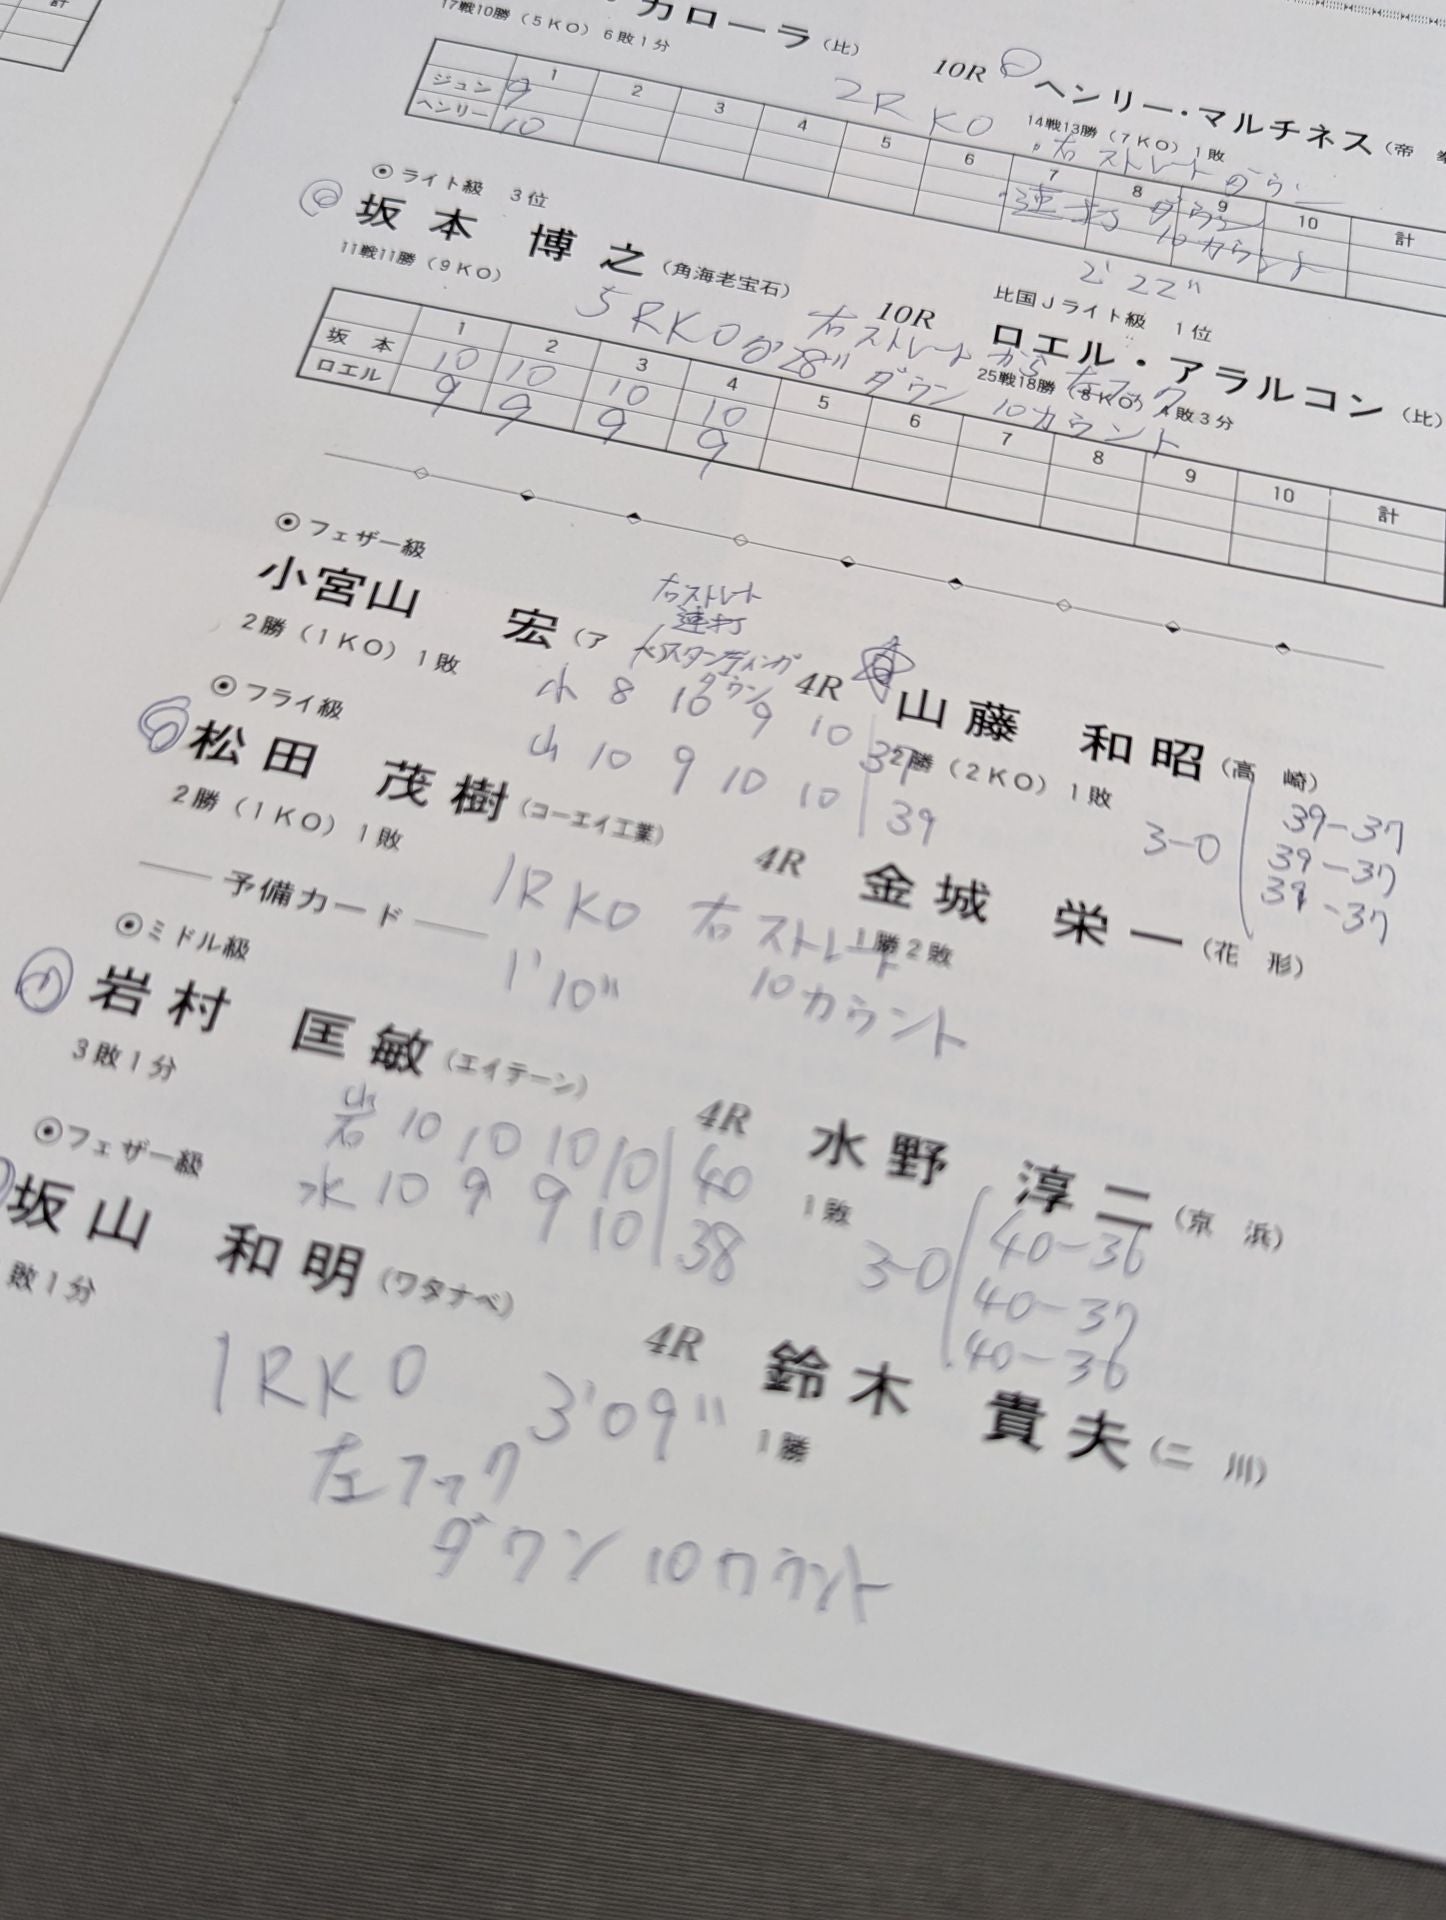 計
カローラ（比）
17戦10勝（5KO）6敗1分
10R
ヘンリー・マルチネス（帝
14戦13勝（7KO）1敗
2R KO
右ストレート ダウン
連打 ダウン
10カウント
2'22"
1 2 3 4 5 6 7 8 9 10 計
ジュン 9
ヘンリー 10
◉ライト級 3位
坂本 博之（角海老宝石）
11戦11勝（9KO）
10R
比国Jライト級 1位
ロエル・アラルコン（比）
25戦18勝（8KO）4敗3分
5RKO 28" 右ストレートから左フック
ダウン 10カウント
1 2 3 4 5 6 7 8 9 10 計
坂本 10 10 10 10
ロエル 9 9 9 9
◉フェザー級
小宮山 宏（ア
2勝（1KO）1敗
右ストレート
連打
スタンディング
ダウン
4R
山藤 和昭（高 崎）
2勝（2KO）1敗
小 8 10 9 10 37
山 10 9 10 10 39
3-0
39-37
39-37
39-37
◉フライ級
松田 茂樹（コーエイ工業）
2勝（1KO）1敗
4R
金城 栄一（花 形）
1勝2敗
1RKO 右ストレート
1'10" 10カウント
予備カード
◉ミドル級
岩村 匡敏（エイテーン）
3敗1分
4R
水野 淳二（京 浜）
1敗
岩 10 10 10 10 40
水 10 9 9 10 38
3-0
40-36
40-37
40-36
◉フェザー級
坂山 和明（ワタナベ）
敗1分
4R
鈴木 貴夫（二 川）
1勝
1RKO 3'09"
左フック
ダウン 10カウント